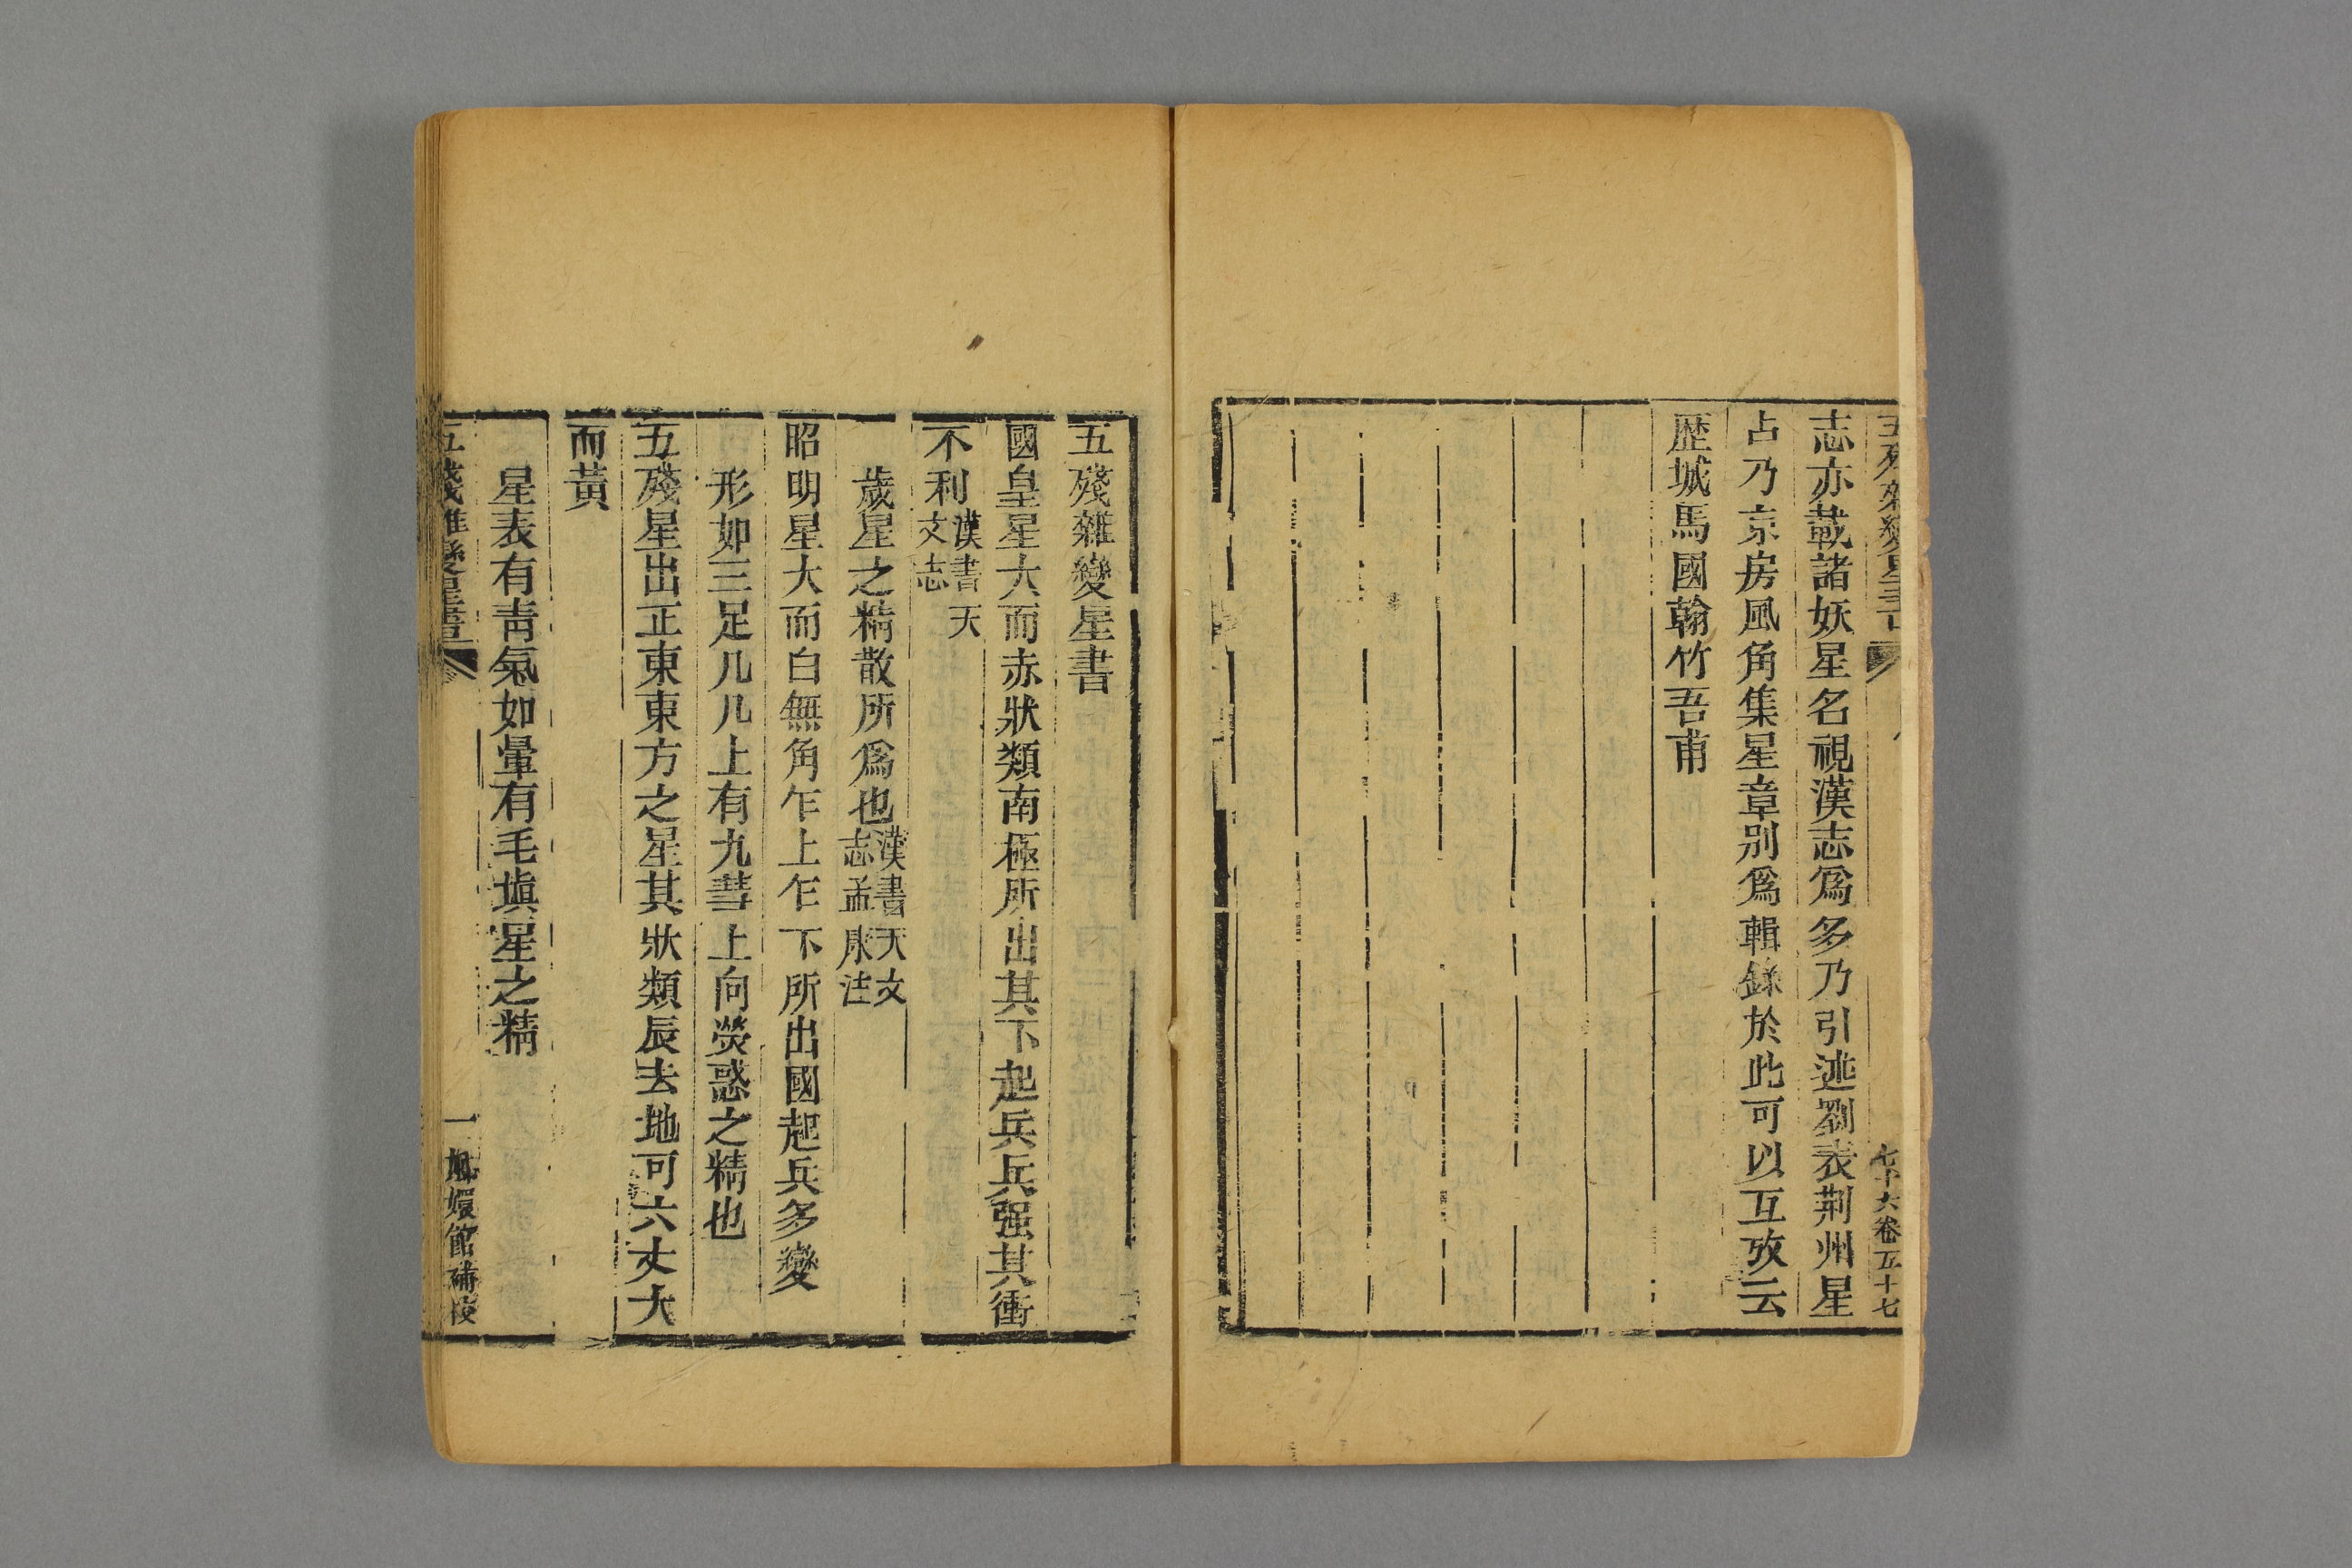 志亦載諸妖星名視漢志爲多乃引述劉表荆州星
占乃京房風角集星章别爲輯錄於此可以互攷云
歴城馬國翰竹吾甫
七十六卷五十七
五殘雜變星書
國皇星大而赤狀類南極所出其下起兵兵强其衝
不利漢書天
文志
歲星之精散所爲也漢書天文
志孟康注
昭明星大而白無角乍上乍下所出國起兵多變
形如三足几几上有九彗上向熒惑之精也
五殘星出正東東方之星其狀類辰去地可六丈大
而黄
星表有靑氣如暈有毛塡星之精
五殘雜變星書
一
嫏嬛館補校